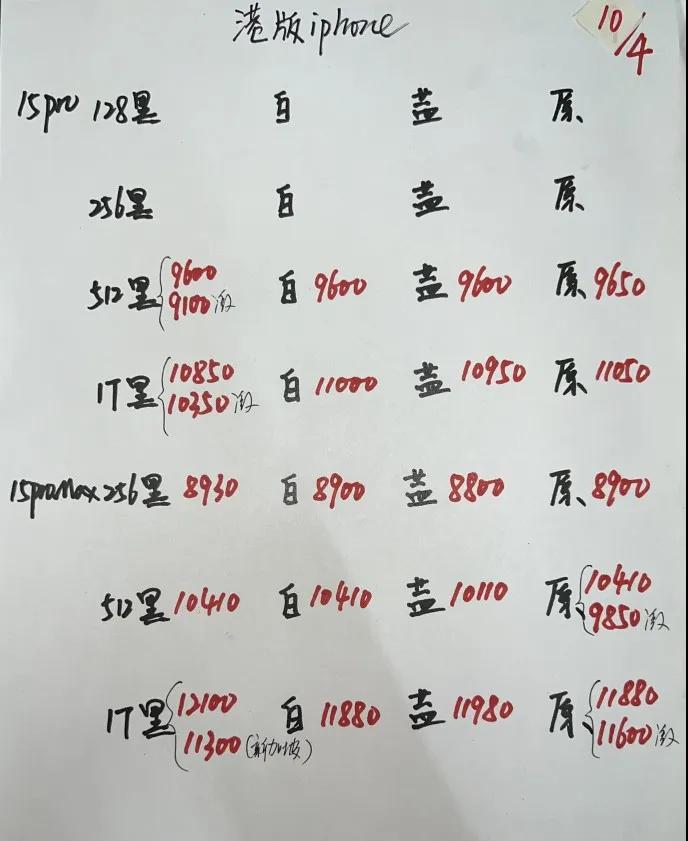 港版iphone
10/4
15pro 128黑 白 蓝 原
256黑 白 蓝 原
512黑 9600 9100激 白 9600 蓝 9600 原 9650
1T黑 10850 10350激 白 11000 蓝 10950 原 11050
15proMax 256黑 8930 白 8900 蓝 8800 原 8900
512黑 10410 白 10410 蓝 10110 原 10410 9850激
1T黑 12100 11300(新加坡) 白 11880 蓝 11980 原 11880 11600激